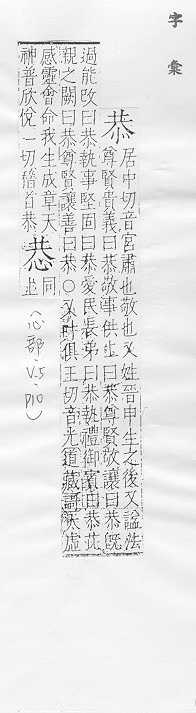 字彙
恭 居中切音宮肅也敬也又姓晉申生之後又諡法
尊賢貴義曰恭敬事供上曰恭尊賢敬讓曰恭既
過能改曰恭執事堅固曰恭愛民長弟曰恭執禮御賓曰恭芘
親之闕曰恭尊賢讓善曰恭○又叶俱王切音光道藏謌太虛
感靈會命我生成章天
神普欣悅一切稽首恭 㤨 同上
(心部.V.5.P10)